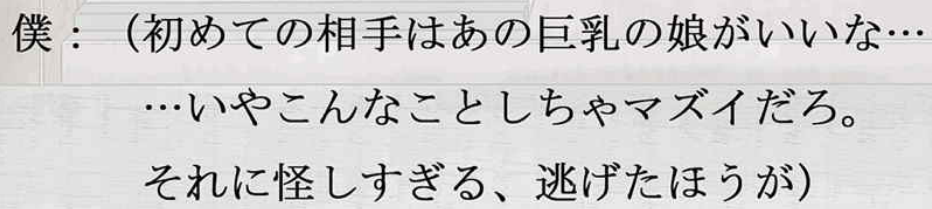 僕：（初めての相手はあの巨乳の娘がいいな…
…いやこんなことしちゃマズイだろ。
それに怪しすぎる、逃げたほうが）